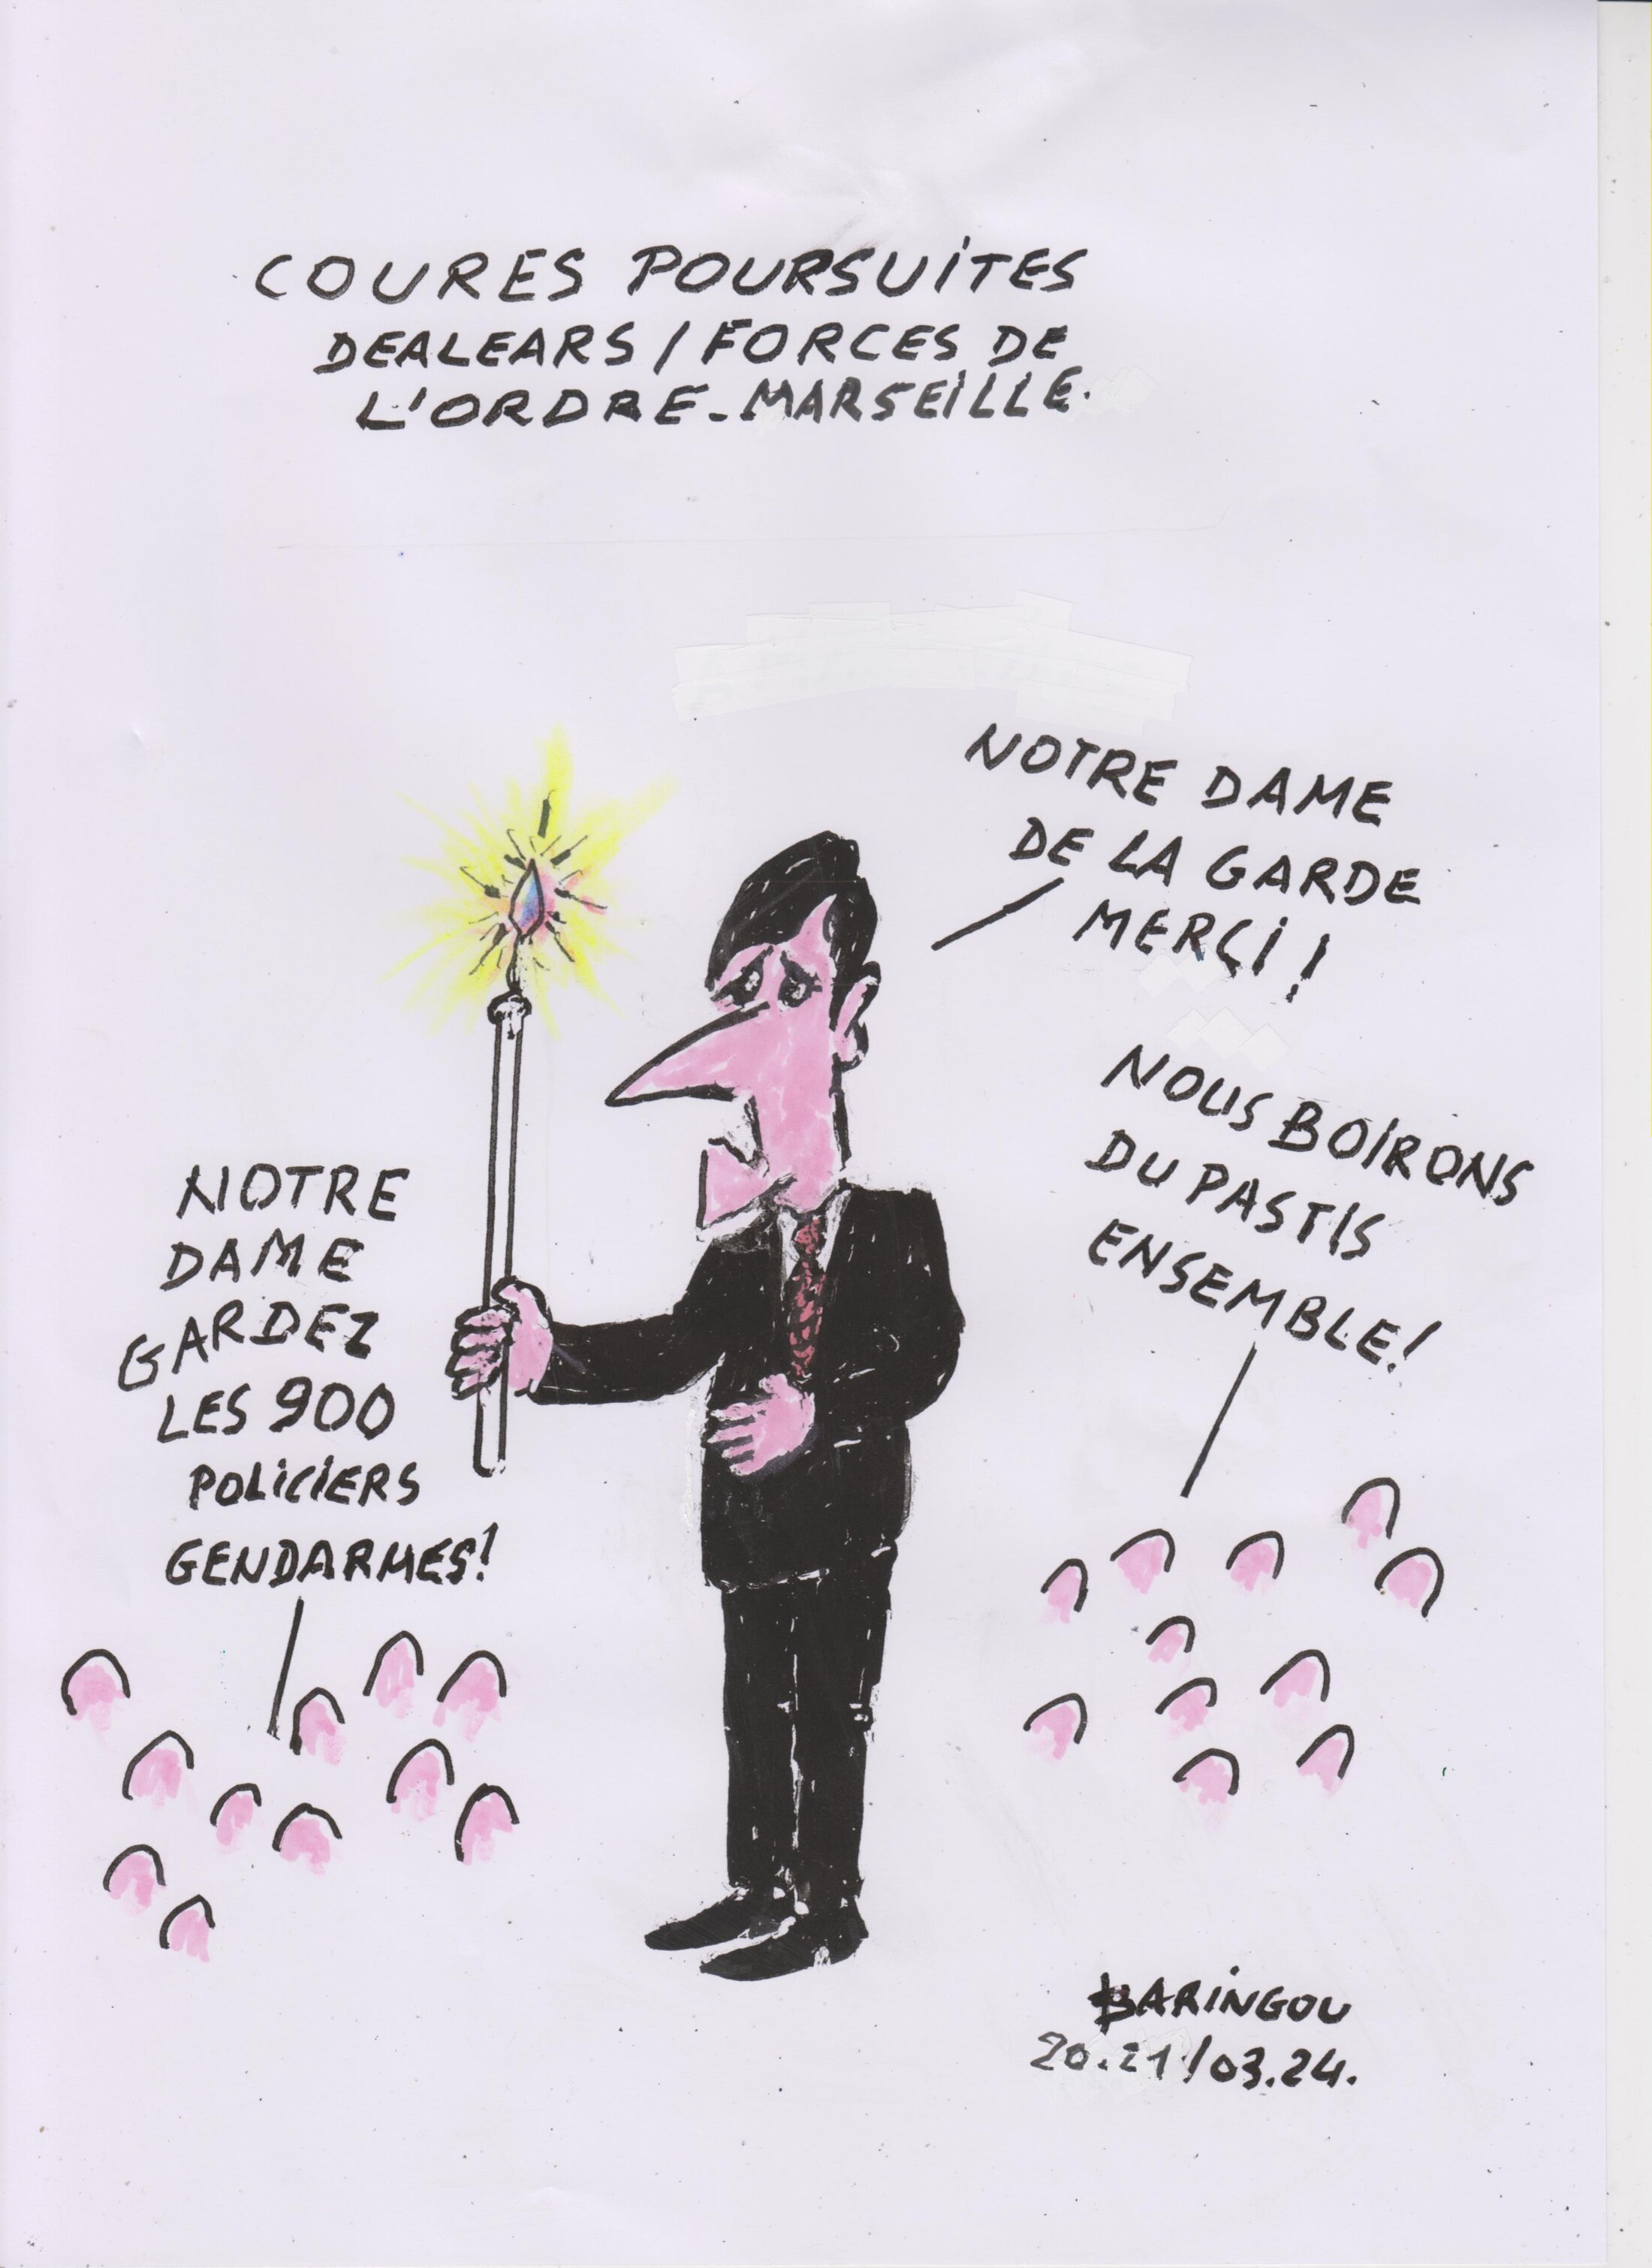 COURES POURSUITES
DEALEARS / FORCES DE
L'ORDRE - MARSEILLE.
NOTRE DAME
DE LA GARDE
MERÇI !
NOUS BOIRONS
DU PASTIS
ENSEMBLE !
NOTRE
DAME
GARDEZ
LES 900
POLICIERS
GENDARMES !
BARINGOU
20.21/03.24.